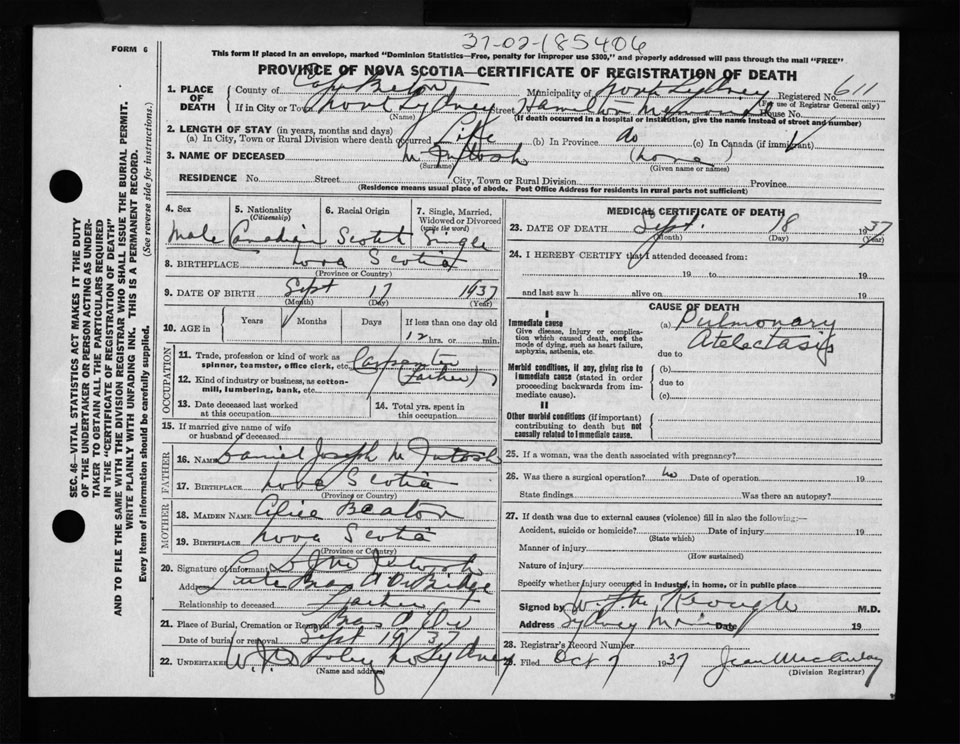 37-02-185406
FORM 6
This form if placed in an envelope, marked "Dominion Statistics—Free, penalty for improper use $300," and properly addressed will pass through the mail "FREE"
PROVINCE OF NOVA SCOTIA—CERTIFICATE OF REGISTRATION OF DEATH
1. PLACE OF DEATH
County of Cape Breton Municipality of North Sydney Registered No. 611
(For use of Registrar General only)
If in City or Town North Sydney Street Hamilton Memorial House No.
(Name) (If death occurred in a hospital or institution, give the name instead of street and number)
2. LENGTH OF STAY (in years, months and days)
(a) In City, Town or Rural Division where death occurred Life (b) In Province do (c) In Canada (if immigrant)
3. NAME OF DECEASED McIntosh (none)
(Surname) (Given name or names)
RESIDENCE No. Street City, Town or Rural Division Province
(Residence means usual place of abode. Post Office Address for residents in rural parts not sufficient)
4. Sex 5. Nationality (Citizenship) 6. Racial Origin 7. Single, Married, Widowed or Divorced (write the word)
Male Canadian Scotch Single
8. BIRTHPLACE Nova Scotia
(Province or Country)
9. DATE OF BIRTH Sept 17 1937
(Month) (Day) (Year)
10. AGE in Years Months Days If less than one day old
12 hrs. or min.
OCCUPATION
11. Trade, profession or kind of work as spinner, teamster, office clerk, etc. Carpenter
12. Kind of industry or business, as cotton-mill, lumbering, bank, etc. (Father)
13. Date deceased last worked at this occupation 14. Total yrs. spent in this occupation
15. If married give name of wife or husband of deceased
FATHER
16. Name Daniel Joseph McIntosh
17. Birthplace Nova Scotia
(Province or Country)
MOTHER
18. MAIDEN NAME Alice Beaton
19. BIRTHPLACE Nova Scotia
(Province or Country)
20. Signature of informant McIntosh
Address Little Bras d'Or Bridge
Relationship to deceased Father
21. Place of Burial, Cremation or Removal Bras d'Or
Date of burial or removal Sept 19 37
22. UNDERTAKER No Sydney
(Name and address)
MEDICAL CERTIFICATE OF DEATH
23. DATE OF DEATH Sept. 18 1937
(Month) (Day) (Year)
24. I HEREBY CERTIFY that I attended deceased from:
19 to 19
and last saw h alive on 19
CAUSE OF DEATH
I
Immediate cause
Give disease, injury or complication which caused death, not the mode of dying, such as heart failure, asphyxia, asthenia, etc.
(a) Pulmonary Atelectasis
due to
Morbid conditions, if any, giving rise to immediate cause (stated in order proceeding backwards from immediate cause).
(b)
due to
(c)
II
Other morbid conditions (if important) contributing to death but not causally related to immediate cause.
25. If a woman, was the death associated with pregnancy?
26. Was there a surgical operation? no Date of operation 19
State findings Was there an autopsy?
27. If death was due to external causes (violence) fill in also the following:—
Accident, suicide or homicide? Date of injury 19
(State which)
Manner of injury
(How sustained)
Nature of injury
Specify whether injury occurred in industry, in home, or in public place
Signed by Keough M.D.
Address Sydney Mines Date 19
28. Registrar's Record Number
29. Filed Oct 7 1937 Jean MacAulay
(Division Registrar)
SEC. 46—VITAL STATISTICS ACT MAKES IT THE DUTY
OF THE UNDERTAKER OR PERSON ACTING AS UNDER-
TAKER TO OBTAIN ALL THE PARTICULARS REQUIRED
IN THE "CERTIFICATE OF REGISTRATION OF DEATH"
AND TO FILE THE SAME WITH THE DIVISION REGISTRAR WHO SHALL ISSUE THE BURIAL PERMIT.
WRITE PLAINLY WITH UNFADING INK. THIS IS A PERMANENT RECORD.
Every item of information should be carefully supplied. (See reverse side for instructions.)